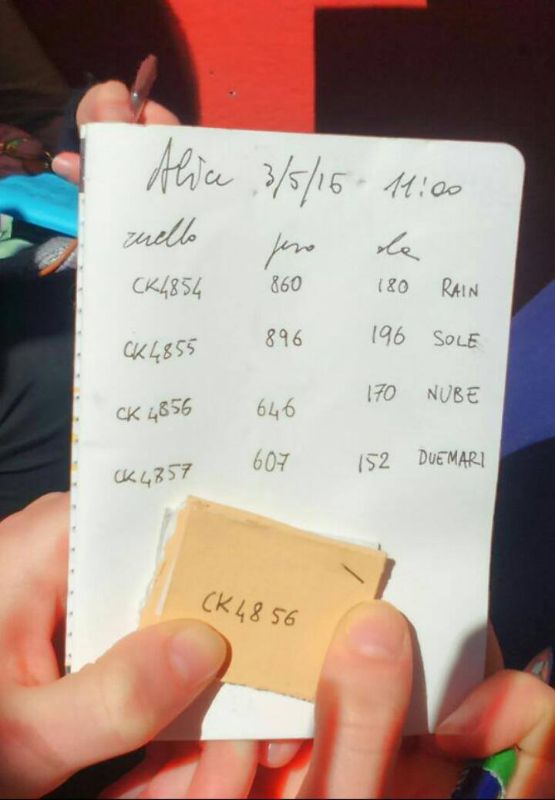 Alice 3/5/15 11:00
anello peso ala
CK4854 860 180 RAIN
CK4855 896 196 SOLE
CK4856 646 170 NUBE
CK4857 607 152 DUEMARI
CK4856